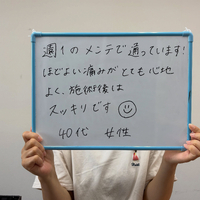 週1のメンテで通っています!
ほどよい痛みがとても心地
よく、施術後は
スッキリです
40代 女性